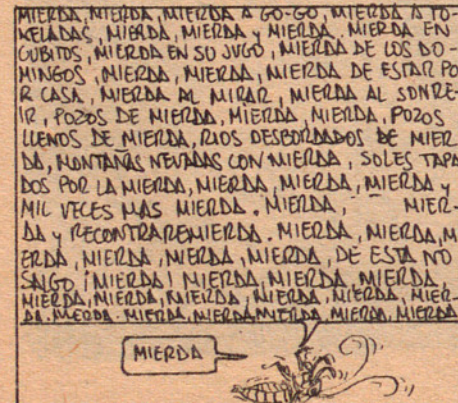 MIERDA, MIERDA, MIERDA A GO-GO, MIERDA A TO-
NELADAS, MIERDA, MIERDA Y MIERDA. MIERDA EN
CUBITOS, MIERDA EN SU JUGO, MIERDA DE LOS DO-
MINGOS, MIERDA, MIERDA, MIERDA DE ESTAR PO
R CASA, MIERDA AL MIRAR, MIERDA AL SONRE-
IR, POZOS DE MIERDA, MIERDA, MIERDA, POZOS
LLENOS DE MIERDA, RIOS DESBORDADOS DE MIER
DA, MONTAÑAS NEVADAS CON MIERDA, SOLES TAPA
DOS POR LA MIERDA, MIERDA, MIERDA, MIERDA Y
MIL VECES MAS MIERDA. MIERDA, MIER-
DA Y RECONTRAREMIERDA. MIERDA, MIERDA, M
ERDA, MIERDA, MIERDA, MIERDA, DE ESTA NO
SALGO ¡MIERDA! MIERDA, MIERDA, MIERDA,
MIERDA, MIERDA, MIERDA, MIERDA, MIERDA, MIER-
DA. MIERDA. MIERDA, MIERDA, MIERDA, MIERDA, MIERDA
MIERDA